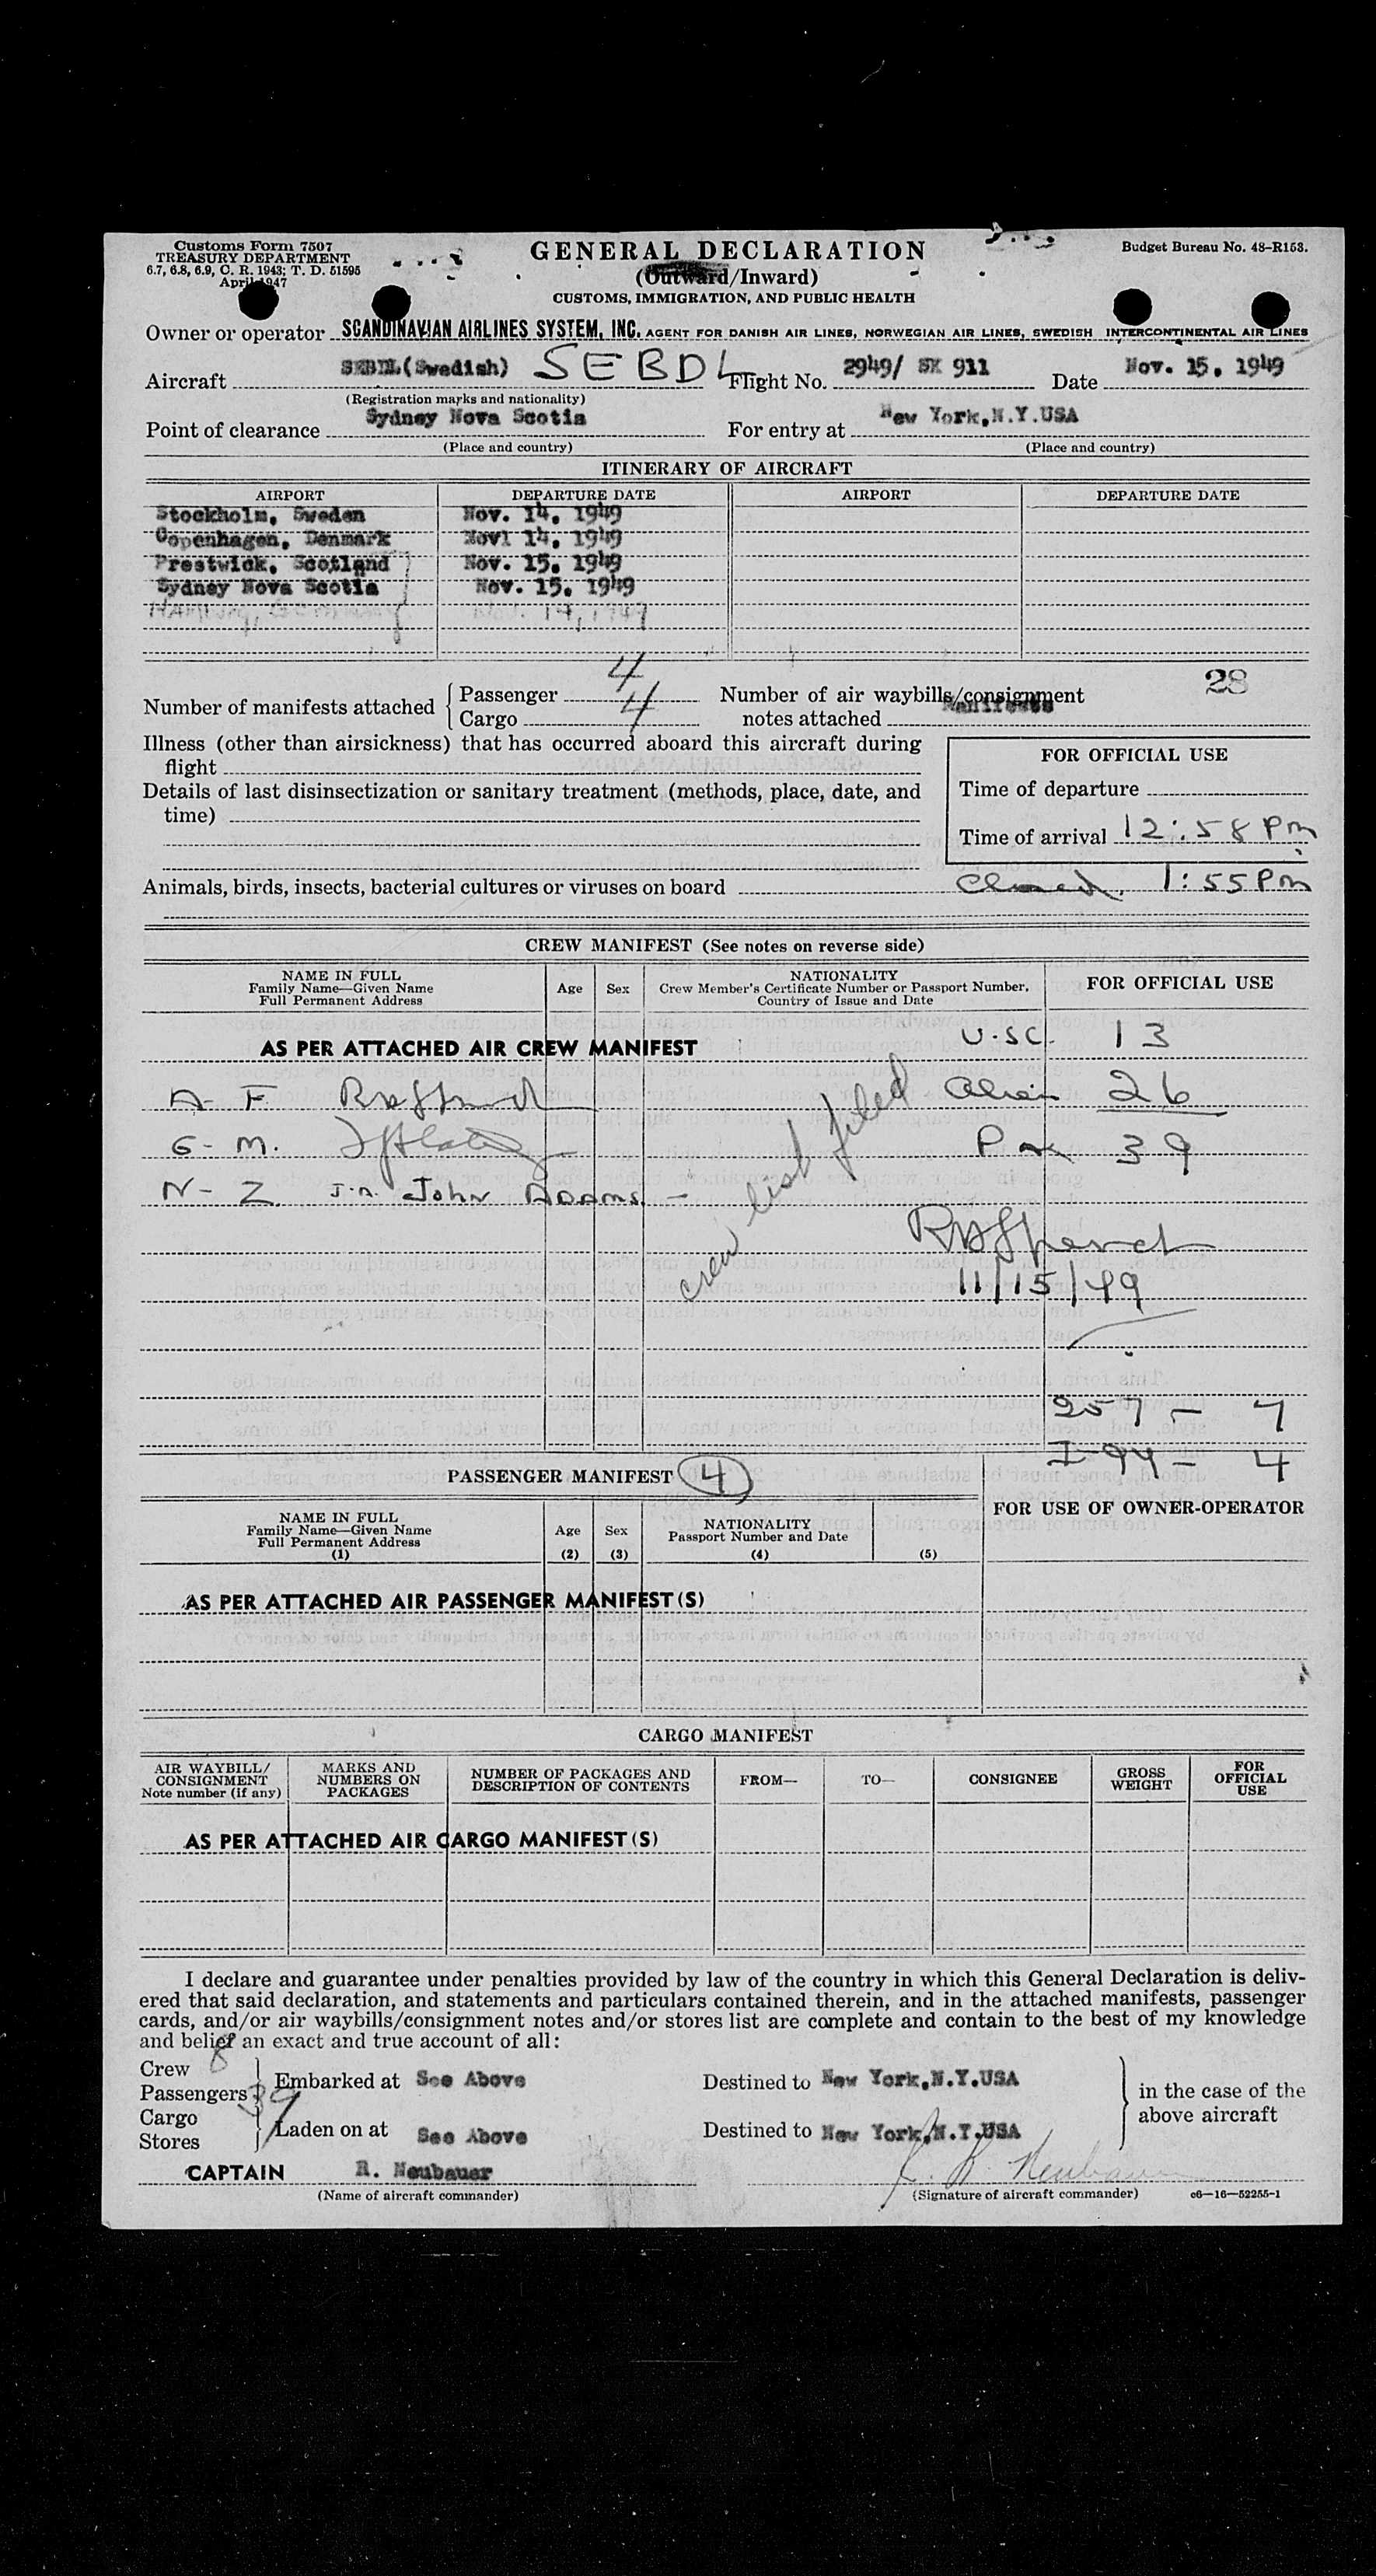 Customs Form 7507
TREASURY DEPARTMENT
6.7, 6.8, 6.9, C. R. 1943; T. D. 51595
April 1947
GENERAL DECLARATION
(Outward/Inward)
CUSTOMS, IMMIGRATION, AND PUBLIC HEALTH
Budget Bureau No. 48-R153.
Owner or operator SCANDINAVIAN AIRLINES SYSTEM, INC. AGENT FOR DANISH AIR LINES, NORWEGIAN AIR LINES, SWEDISH INTERCONTINENTAL AIR LINES
Aircraft SEBDL(Swedish) SEBDL Flight No. 2949/ SK 911 Date Nov. 15, 1949
(Registration marks and nationality)
Point of clearance Sydney Nova Scotia For entry at New York,N.Y.USA
(Place and country) (Place and country)
ITINERARY OF AIRCRAFT
AIRPORT DEPARTURE DATE AIRPORT DEPARTURE DATE
Stockholm, Sweden Nov. 14, 1949
Copenhagen, Denmark Novl 14, 1949
Prestwick, Scotland Nov. 15. 1949
Sydney Nova Scotia Nov. 15. 1949
14, 1949
Number of manifests attached Passenger 4
Cargo 4
Number of air waybills/consignment
notes attached Manifests 28
Illness (other than airsickness) that has occurred aboard this aircraft during
flight
Details of last disinsectization or sanitary treatment (methods, place, date, and
time)
FOR OFFICIAL USE
Time of departure
Time of arrival 12:58 Pm
Animals, birds, insects, bacterial cultures or viruses on board
1:55 Pm
CREW MANIFEST (See notes on reverse side)
NAME IN FULL
Family Name—Given Name
Full Permanent Address
Age
Sex
NATIONALITY
Crew Member's Certificate Number or Passport Number,
Country of Issue and Date
FOR OFFICIAL USE
AS PER ATTACHED AIR CREW MANIFEST
U.SC. 13
A - F
Alien 26
G - M.
Pax 39
N - Z John Adams
crew list filed
11/15/49
257 - 7
I-94 - 4
PASSENGER MANIFEST 4
FOR USE OF OWNER-OPERATOR
NAME IN FULL
Family Name—Given Name
Full Permanent Address
(1)
Age
(2)
Sex
(3)
NATIONALITY
Passport Number and Date
(4)
(5)
AS PER ATTACHED AIR PASSENGER MANIFEST(S)
CARGO MANIFEST
AIR WAYBILL/
CONSIGNMENT
Note number (if any)
MARKS AND
NUMBERS ON
PACKAGES
NUMBER OF PACKAGES AND
DESCRIPTION OF CONTENTS
FROM—
TO—
CONSIGNEE
GROSS
WEIGHT
FOR
OFFICIAL
USE
AS PER ATTACHED AIR CARGO MANIFEST(S)
I declare and guarantee under penalties provided by law of the country in which this General Declaration is deliv-
ered that said declaration, and statements and particulars contained therein, and in the attached manifests, passenger
cards, and/or air waybills/consignment notes and/or stores list are complete and contain to the best of my knowledge
and belief an exact and true account of all:
Crew 8
Passengers 39
Embarked at See Above Destined to New York,N.Y.USA
Cargo
Stores
Laden on at See Above Destined to New York,N.Y.USA
in the case of the
above aircraft
CAPTAIN R. Neubauer
(Name of aircraft commander) (Signature of aircraft commander) c6—16—52255-1